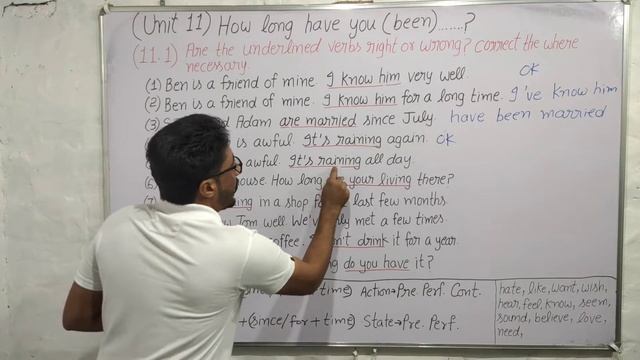 (Unit 11) How long have you (been).......?
(11.1) Are the underlined verbs right or wrong? Correct the where
necessary.
(1) Ben is a friend of mine. I know him very well. OK
(2) Ben is a friend of mine. I know him for a long time. I've know him
(3) Adam are married since July. have been married
is awful. It's raining again. OK
awful. It's raining all day.
(6) house. How long your living there?
(7) in a shop last few months.
Tom well. We've only met a few times.
coffee. drink it for a year.
do you have it?
time) Action→Pre. Perf. Cont.
+ (since/for + time) State→Pre. Perf.
hate, like, want, wish,
hear, feel, know, seem,
sound, believe, love,
need,